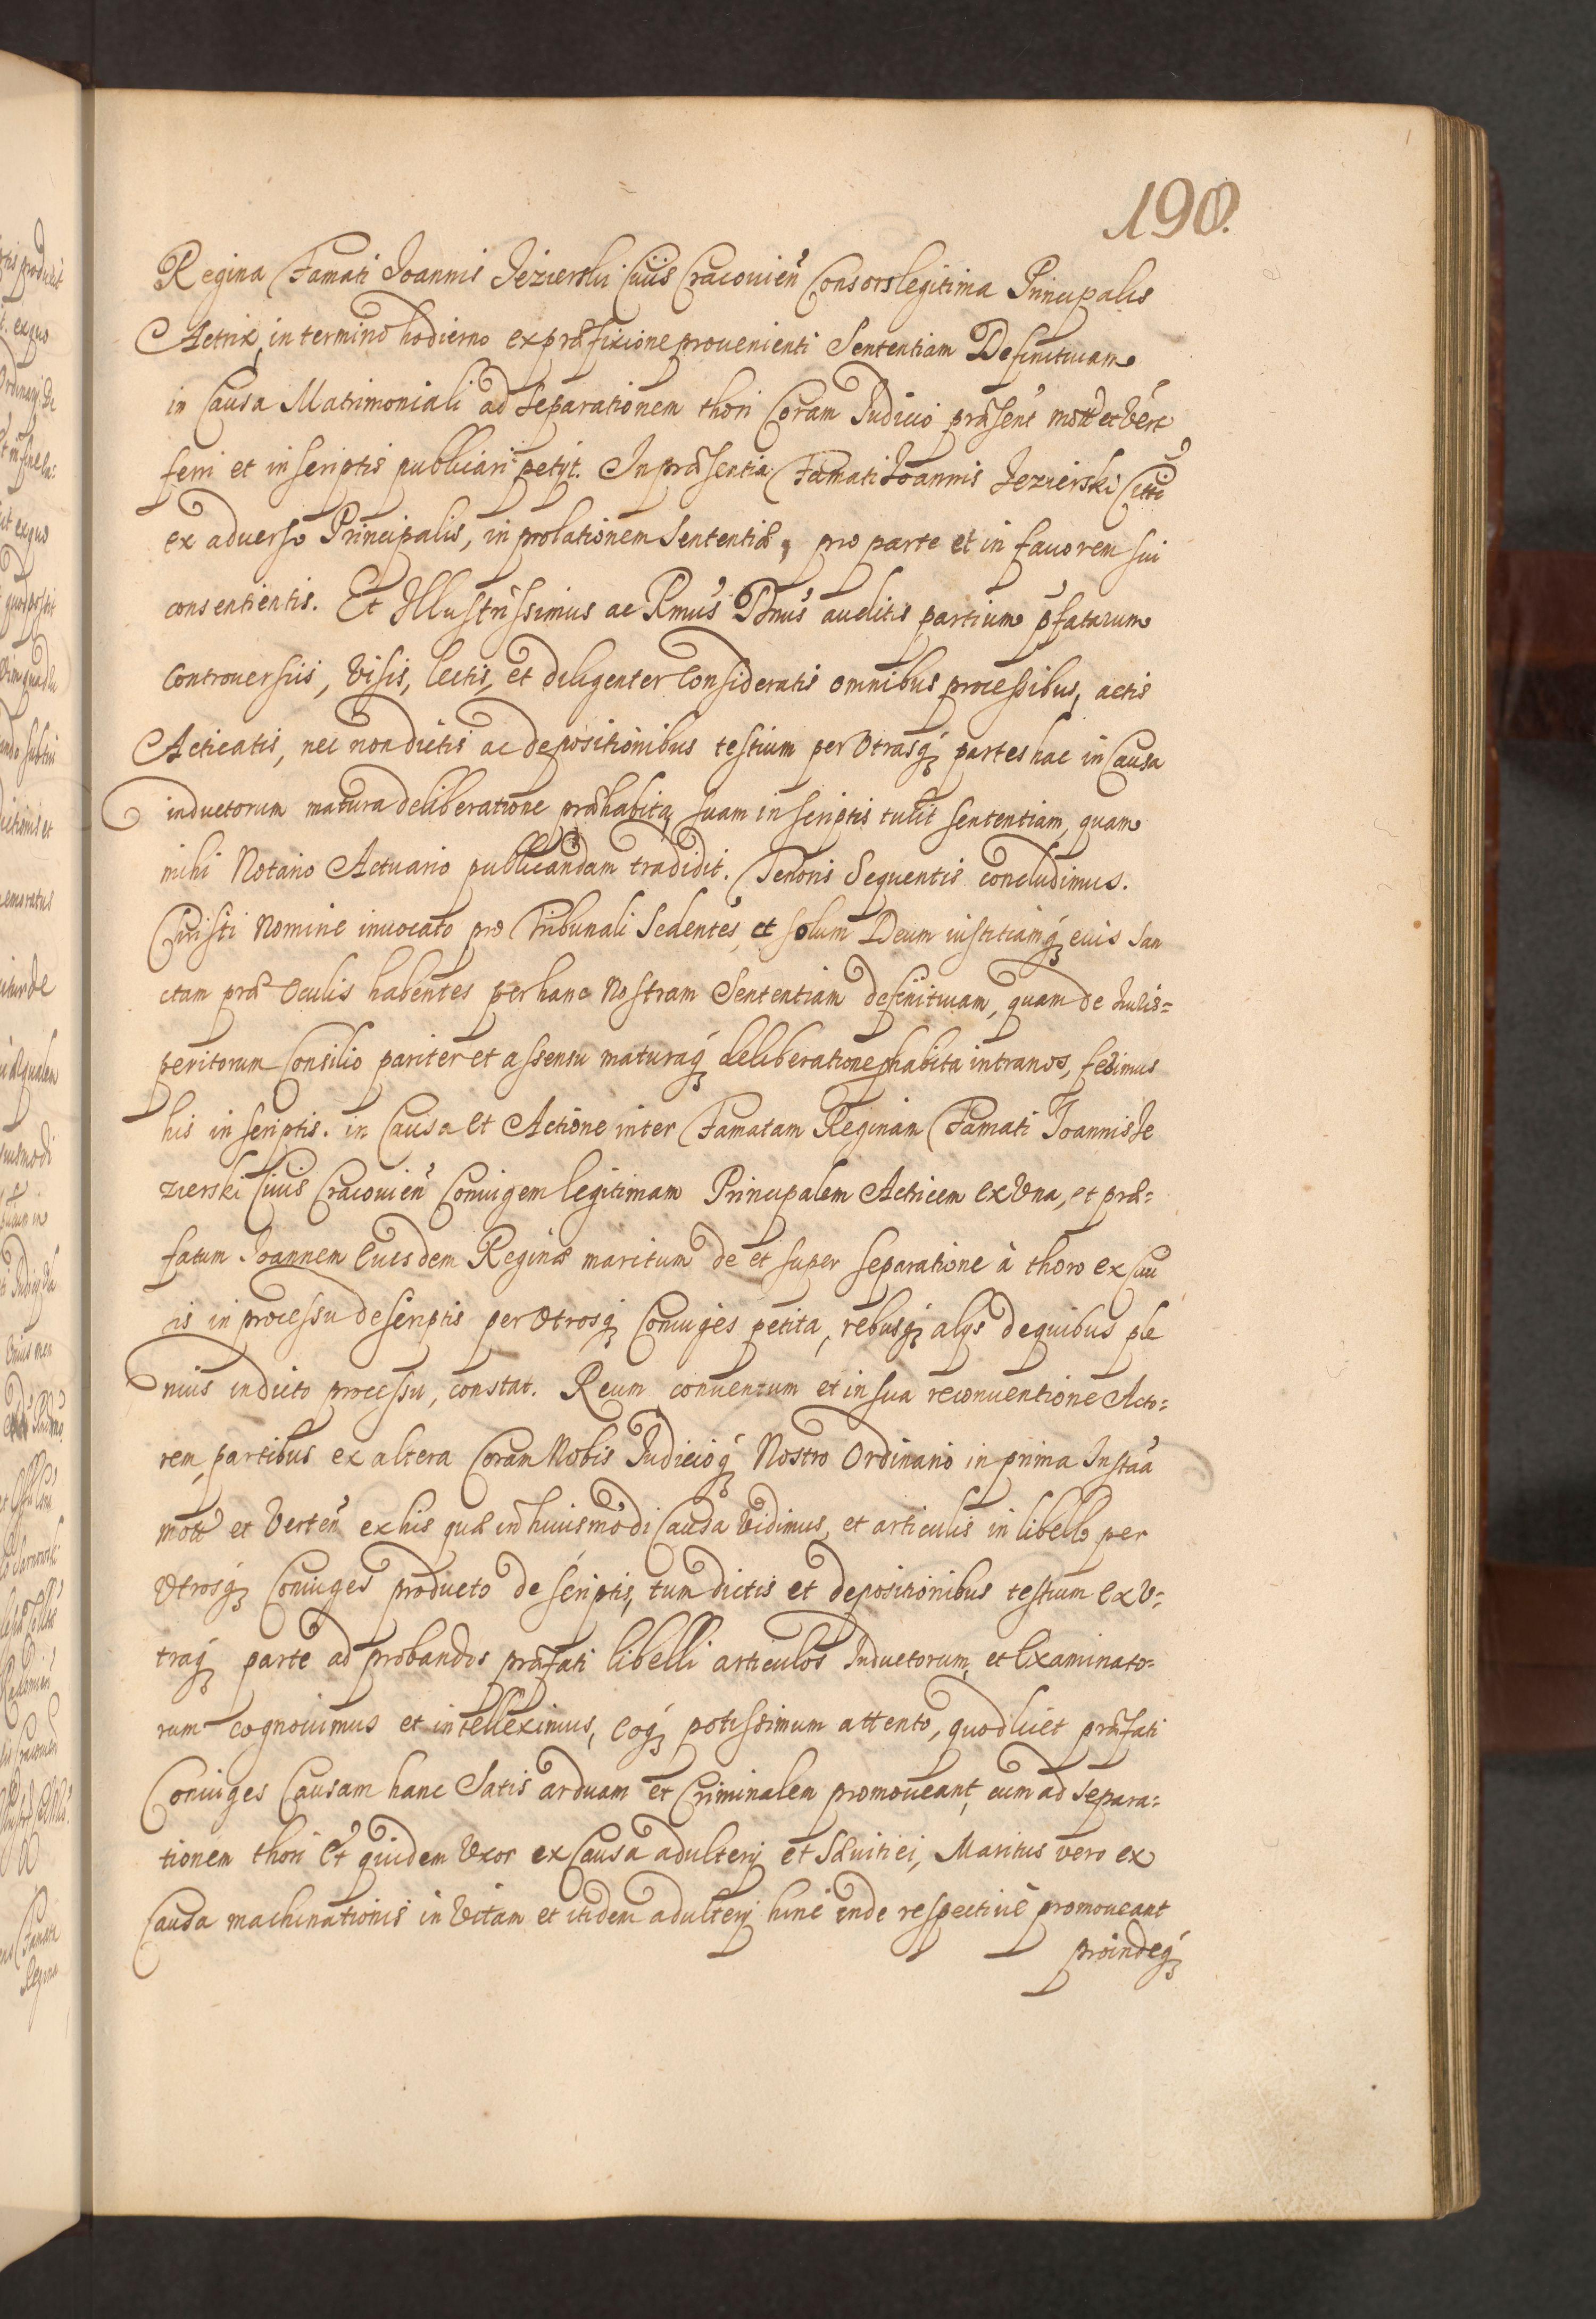 190.
Regina Famati Joannis Jezierski Civis Cracovien̄ Consors legitima Principalis
Actrix, in termino hodierno ex præfixione provenienti Sententiam Definitivam
in Causa Matrimoniali ad Separationem thori Coram Judicio præsent mott et Vert
ferri et in scriptis publicari petyt. In præsentia Famati Joannis Jezierski Citti
ex adverso Principalis, in prolationem Sententiæ, pro parte et in favorem sui
consentientis. Et Illustrissimus ac Rmus Dnus auditis partium pfatarum
Controversiis, Visis, lectis, et diligenter Consideratis omnibus processibus, actis
Acticatis, nec non dictis ac depositionibus testium per Utrasq partes hac in Causa
inductorum matura deliberatione præhabita, suam in scriptis tulit sententiam, quam
mihi Notario Actuario publicandam tradidit. Tenoris Sequentis concludimus.
Christi Nomine invocato pro Tribunali Sedentes, et solum Deum iustitiamq eius San
ctam præ Oculis habentes per hanc Nostram Sententiam definitivam, quam de Iuris=
peritorum Consilio pariter et assensu maturaq deliberatione phabita intra nos, fecimus
his in scriptis. in Causa et Actione inter Famatam Reginam Famati Joannis Je
zierski Civis Cracovien̄ Coniugem legitimam Principalem Actricem ex Una, et præ=
fatum Joannem Euisdem Reginæ maritum de et super separatione à thoro ex cau
is in processu descriptis per Utrosq Coniuges petita, rebusq alijs de quibus ple
nius in dicto processu, constat. Reum conventum et in sua reconventione Acto=
rem, partibus ex altera Coram Nobis Judicioq Nostro Ordinario in prima Instaā
mott et Verten̄ ex his quæ in huiusmodi Causa Vidimus, et articulis in libello per
Utrosq Coniuges producto descriptis, tum dictis et depositionibus testium ex U=
traq parte ad probandos præfati libelli articulos Inductorum, et Examinato=
rum cognovimus et intelleximus, Eoq potissimum attento, quod licet præfati
Coniuges Causam hanc Satis arduam et Criminalem promoveant, cum ad Separa=
tionem thori Et quidem Uxor ex Causa adulterij et Sævitiei, Maritus vero ex
Causa machinationis in Vitam et itidem adulterij hinc inde respectivè promoveant
proindeq